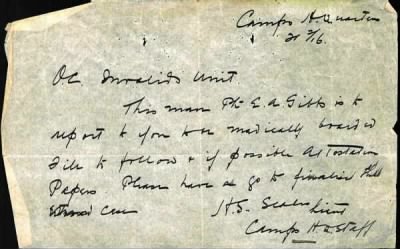 Camps H. Quarters
21 3/16.
OC Invalids Unit
This man Pte E. A. Gibbs is to
report to you to be medically boarded
File to follow & if possible Attestation
Papers Please have go to finalise this
case
H.S.
Lieut
Camps HQ Staff